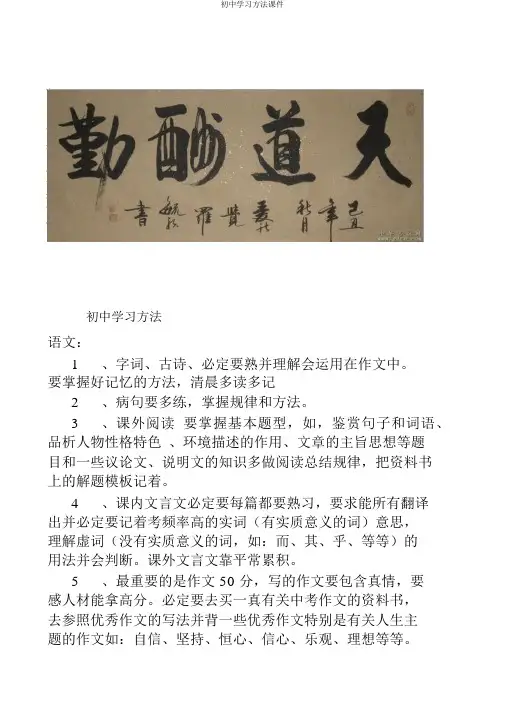 初中学习方法课件
天道酬勤
初中学习方法
语文：
1 、字词、古诗、必定要熟并理解会运用在作文中。
要掌握好记忆的方法，清晨多读多记
2 、病句要多练，掌握规律和方法。
3 、课外阅读 要掌握基本题型，如，鉴赏句子和词语、
品析人物性格特色 、环境描述的作用、文章的主旨思想等题
目和一些议论文、说明文的知识多做阅读总结规律，把资料书
上的解题模板记着。
4 、课内文言文必定要每篇都要熟习，要求能所有翻译
出并必定要记着考频率高的实词（有实质意义的词）意思，
理解虚词（没有实质意义的词，如：而、其、乎、等等）的
用法并会判断。课外文言文靠平常累积。
5 、最重要的是作文 50 分，写的作文要包含真情，要
感人材能拿高分。必定要去买一真有关中考作文的资料书，
去参照优秀作文的写法并背一些优秀作文特别是有关人生主
题的作文如：自信、坚持、恒心、信心、乐观、理想等等。